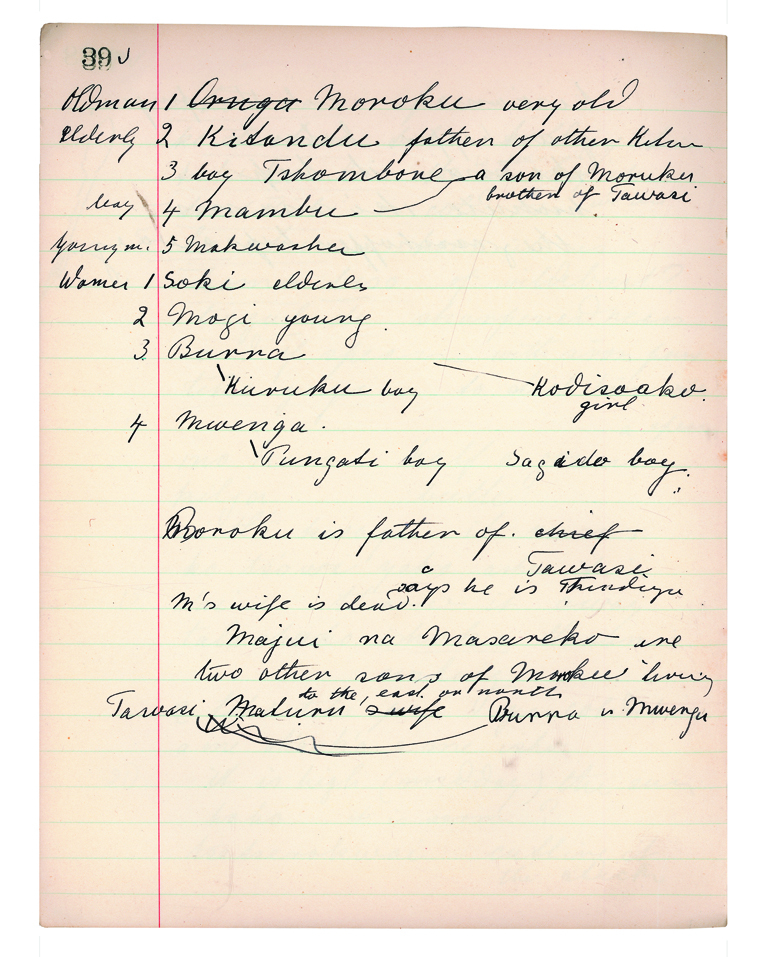 39
Oldman 1 Oruga Moroku very old
Elderly 2 Kitandu father of other
3 boy Tshombone a son of Moruku
brother of Tawasi
boy 4 Mambu
young m. 5 Makwasher
Women 1 Soki elderly
2 Mogi young.
3 Burra
Kuruku boy Kodisoako.
girl
4 Mwenga.
Pungati boy Sagido boy.
Boroku is father of. chief
Tawasi
says he is
M's wife is dead.
Majui na Masareko are
two other sons of living
to the, east. or north
Tawasi Maturu's wife Burra u Mwenga